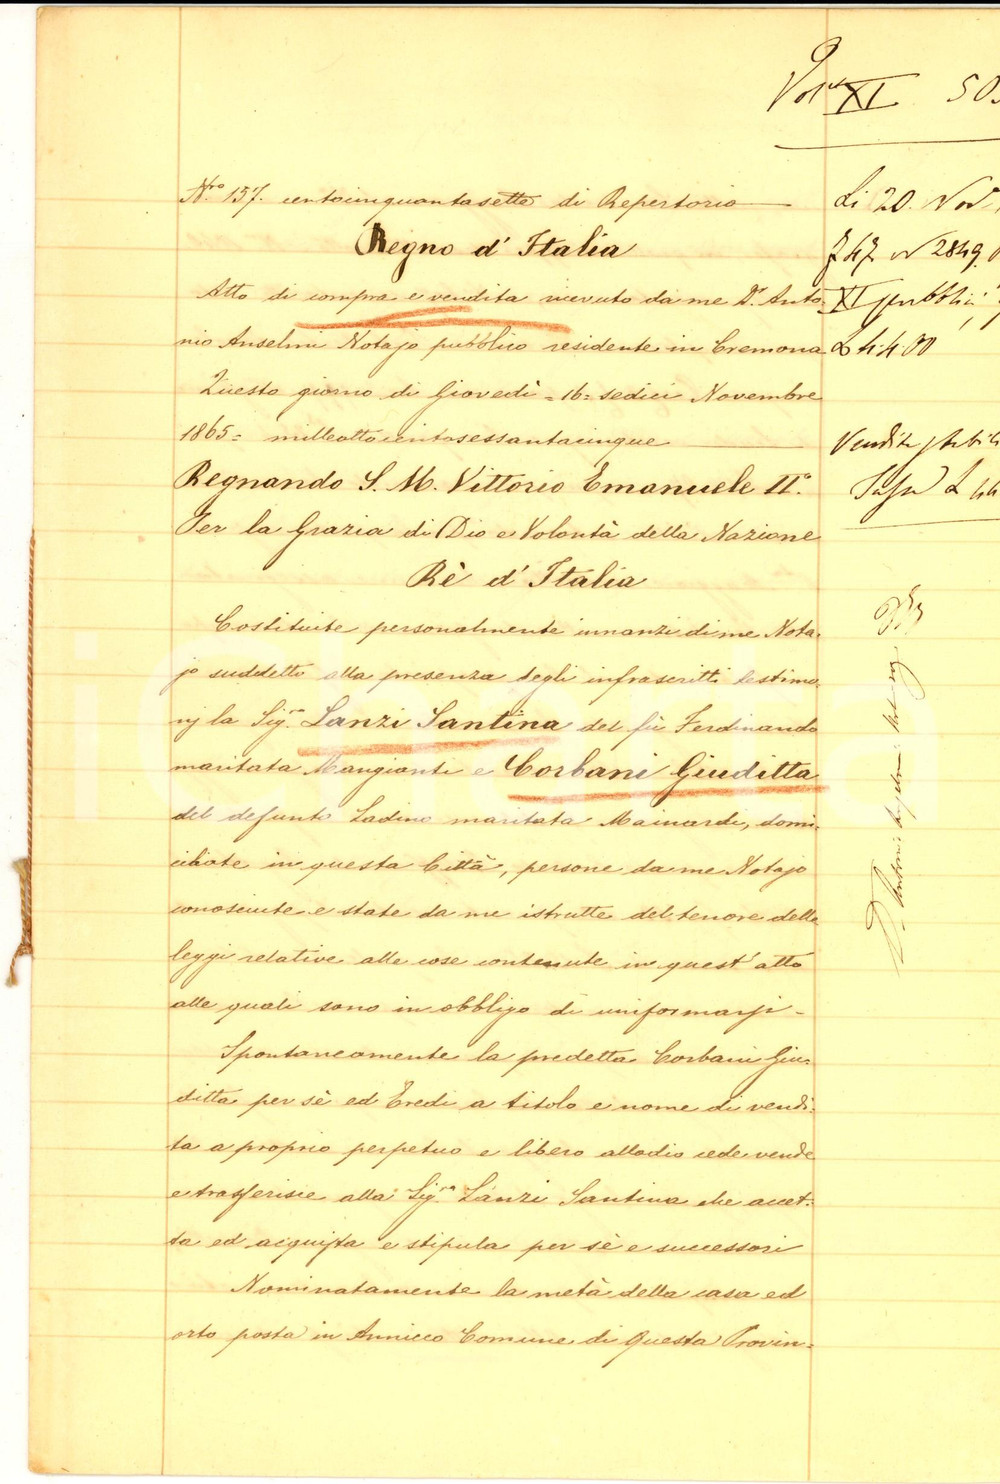 Vol. XI 503
N.ro 157. centocinquantasette di Repertorio
Regno d'Italia
Atto di compra e vendita ricevuto da me D.r Anto-
nio Anselmi Notajo pubblico residente in Cremona
Questo giorno di Giovedì = 16 = sedici Novembre
1865 = milleottocentosessantacinque
Regnando S. M. Vittorio Emanuele II.°
Per la Grazia di Dio e Volontà della Nazione
Rè d'Italia
Costituite personalmente innanzi di me Nota-
jo suddetto alla presenza degli infrascritti testimo-
nj la Sig.ra Lanzi Santina del fù Ferdinando
maritata Mangianti e Corbani Giuditta
del defunto Ladino maritata Mainardi, domi-
ciliate in questa Città, persone da me Notajo
conosciute e state da me istrutte del tenore delle
leggi relative alle cose contenute in quest'atto
alle quali sono in obbligo di uniformarsi -
Spontaneamente la predetta Corbani Giu-
ditta per sè ed Eredi a titolo e nome di vendi-
ta a proprio perpetuo e libero allodio cede vende
e trasferisce alla Sig.ra Lanzi Santina che accet-
ta ed acquista e stipula per sè e successori
Nominatamente la metà della casa ed
orto posta in Annicco Comune di questa Provin-
Li 20. Nov.
2849.
XI pubblici
L 44.00
Vendite stabili
L 44
D.r Antonio